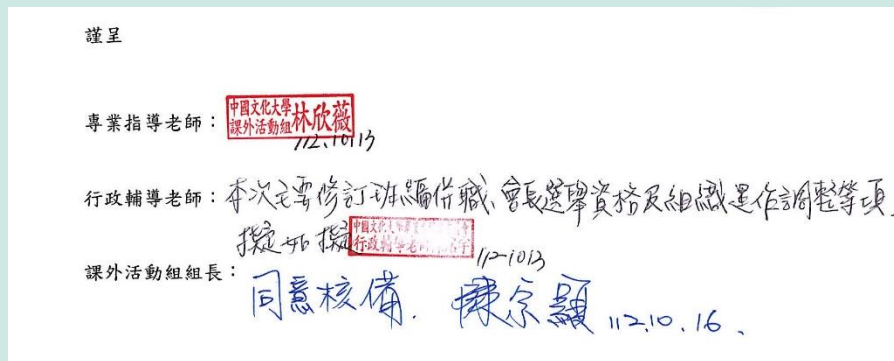 謹呈
專業指導老師：中國文化大學課外活動組林欣薇
112.1013
行政輔導老師：本次主要修訂班編併職、會長選舉資格及組織運作調整等項，
擬如擬 行政輔導老師 112-1013
課外活動組組長：
同意核備. 陳宗穎 112.10.16.